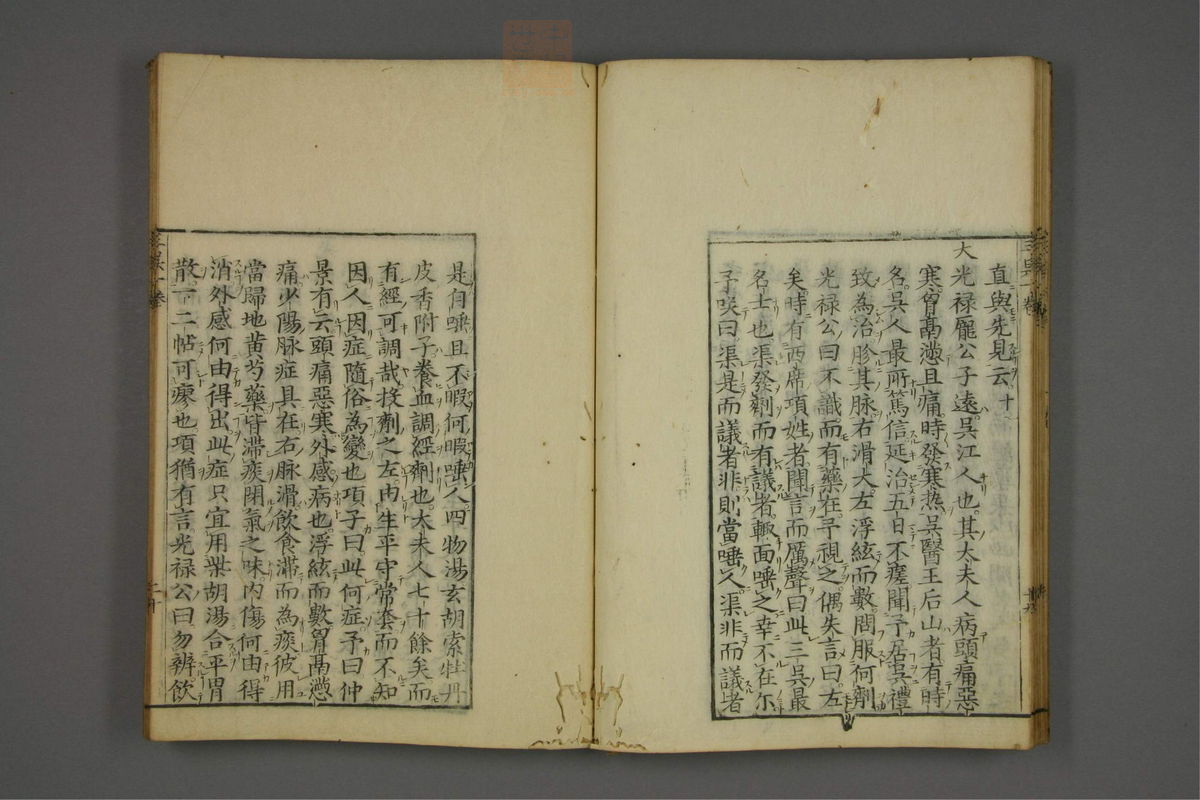 直與先見云
大光禄龐公子遠吳江人也其太夫人病頭痛惡
寒胷鬲懑且痛時發寒热吳醫王后山者有時
名吳人最所篤信延治五日不瘥聞予居吳禮
致為治胗其脉右滑大左浮絃而數問服何劑
光禄公曰不識而有藥在予視之偶失言曰左
矣時有西席項姓者聞言而厲聲曰此三吳最
名士也渠發劑而有議者輙面唾之幸不在尓
予咲曰渠是而議者非則當唾人渠非而議者
是自唾且不暇何暇唾人四物湯玄胡索牡丹
皮香附子養血調經劑也太夫人七十餘矣而
有經可調哉投劑之左由生平守常套而不知
因人因症隨俗為變也項子曰此何症予曰仲
景有云頭痛惡寒外感病也浮絃而數胷鬲懑
痛少陽脉症具在右脉滑飲食滯而為痰彼用
當歸地黄芍藥皆滯痰閉氣之味内傷何由得
消外感何由得出此症只宜用柴胡湯合平胃
散一二帖可瘳也項猶有言光禄公曰勿辨飲